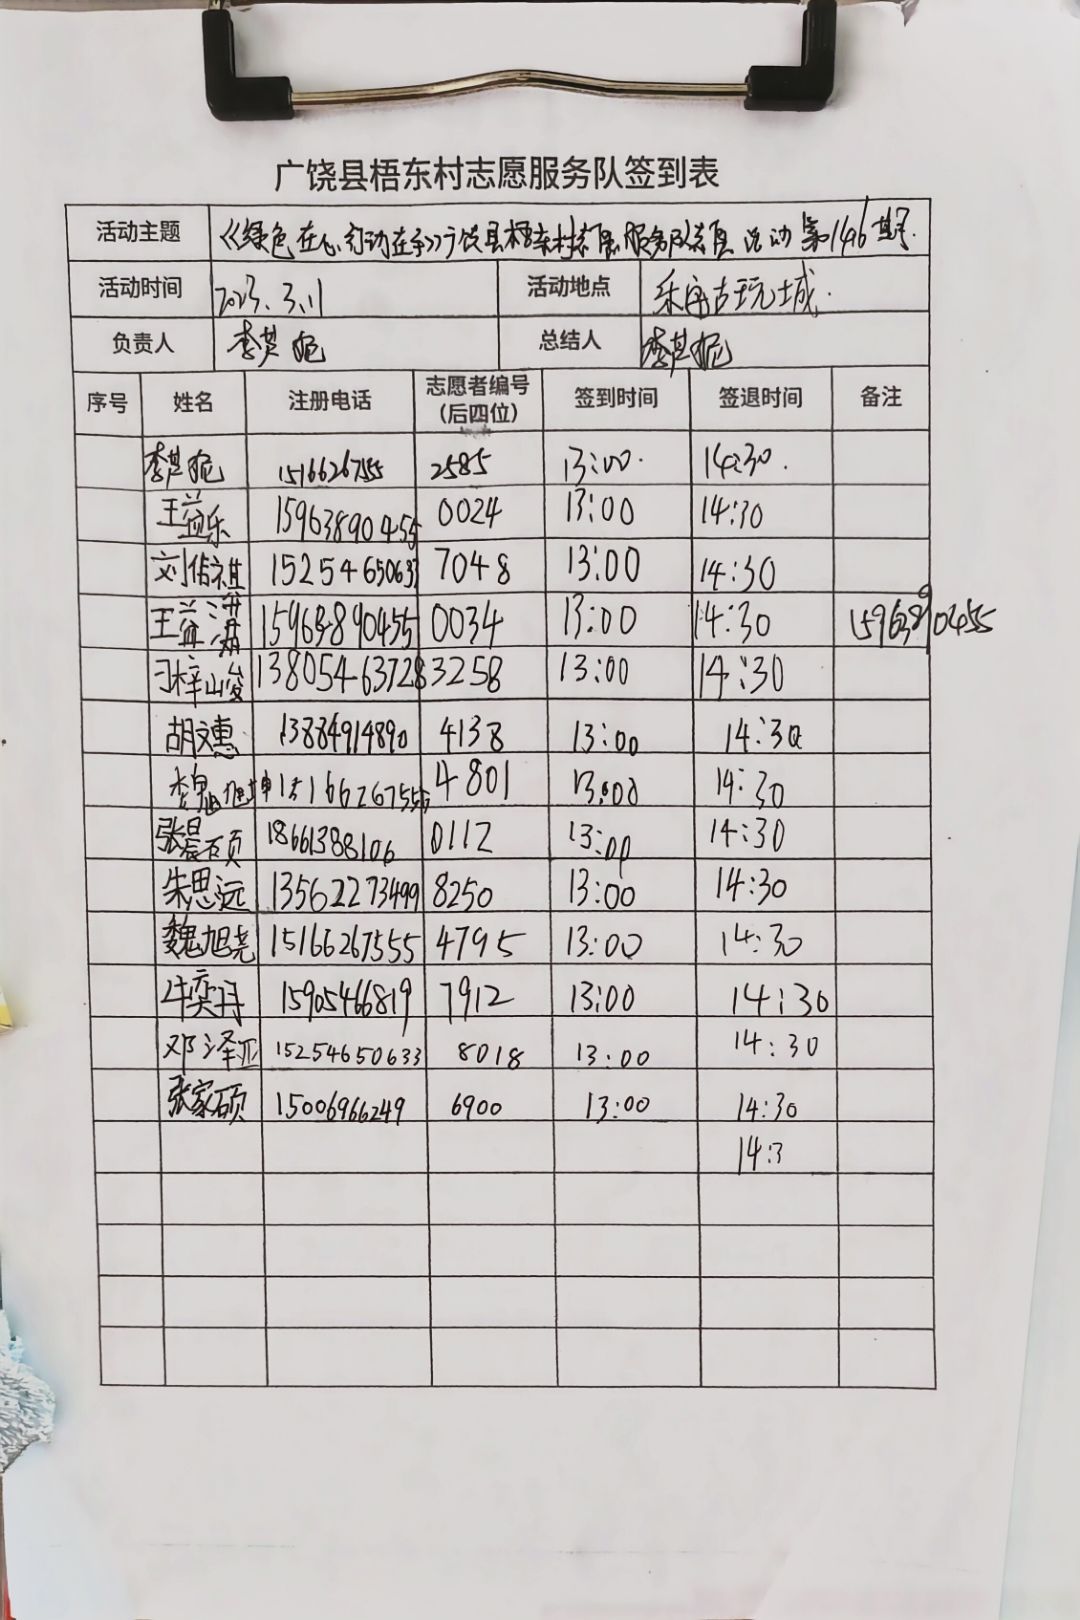 广饶县梧东村志愿服务队签到表
活动主题 《绿色在心行动在手》广饶县梧东村志愿服务队志愿活动第146期
活动时间 2023.3.11 活动地点 乐安古玩城.
负责人 李芸妮 总结人 李芸妮
序号 姓名 注册电话 志愿者编号（后四位） 签到时间 签退时间 备注
李芸妮 15166267555 2585 13:00. 14:30.
王益乐 15963890455 0024 13:00 14:30
刘佑祺 15254650633 7048 13:00 14:30
王益 15963890455 0034 13:00 14:30 15963890455
13805463728 3258 13:00 14:30
胡文惠 13884914890 4138 13:00 14:30
魏旭坤 15166267555 4801 13:00 14:30
张晨硕 18661388106 0112 13:00 14:30
朱思远 13562273499 8250 13:00 14:30
魏旭尧 15166267555 4795 13:00 14:30
牛奕丹 15905466819 7912 13:00 14:30
邓泽亚 15254650633 8018 13:00 14:30
张家硕 15006966249 6900 13:00 14:30
14:3